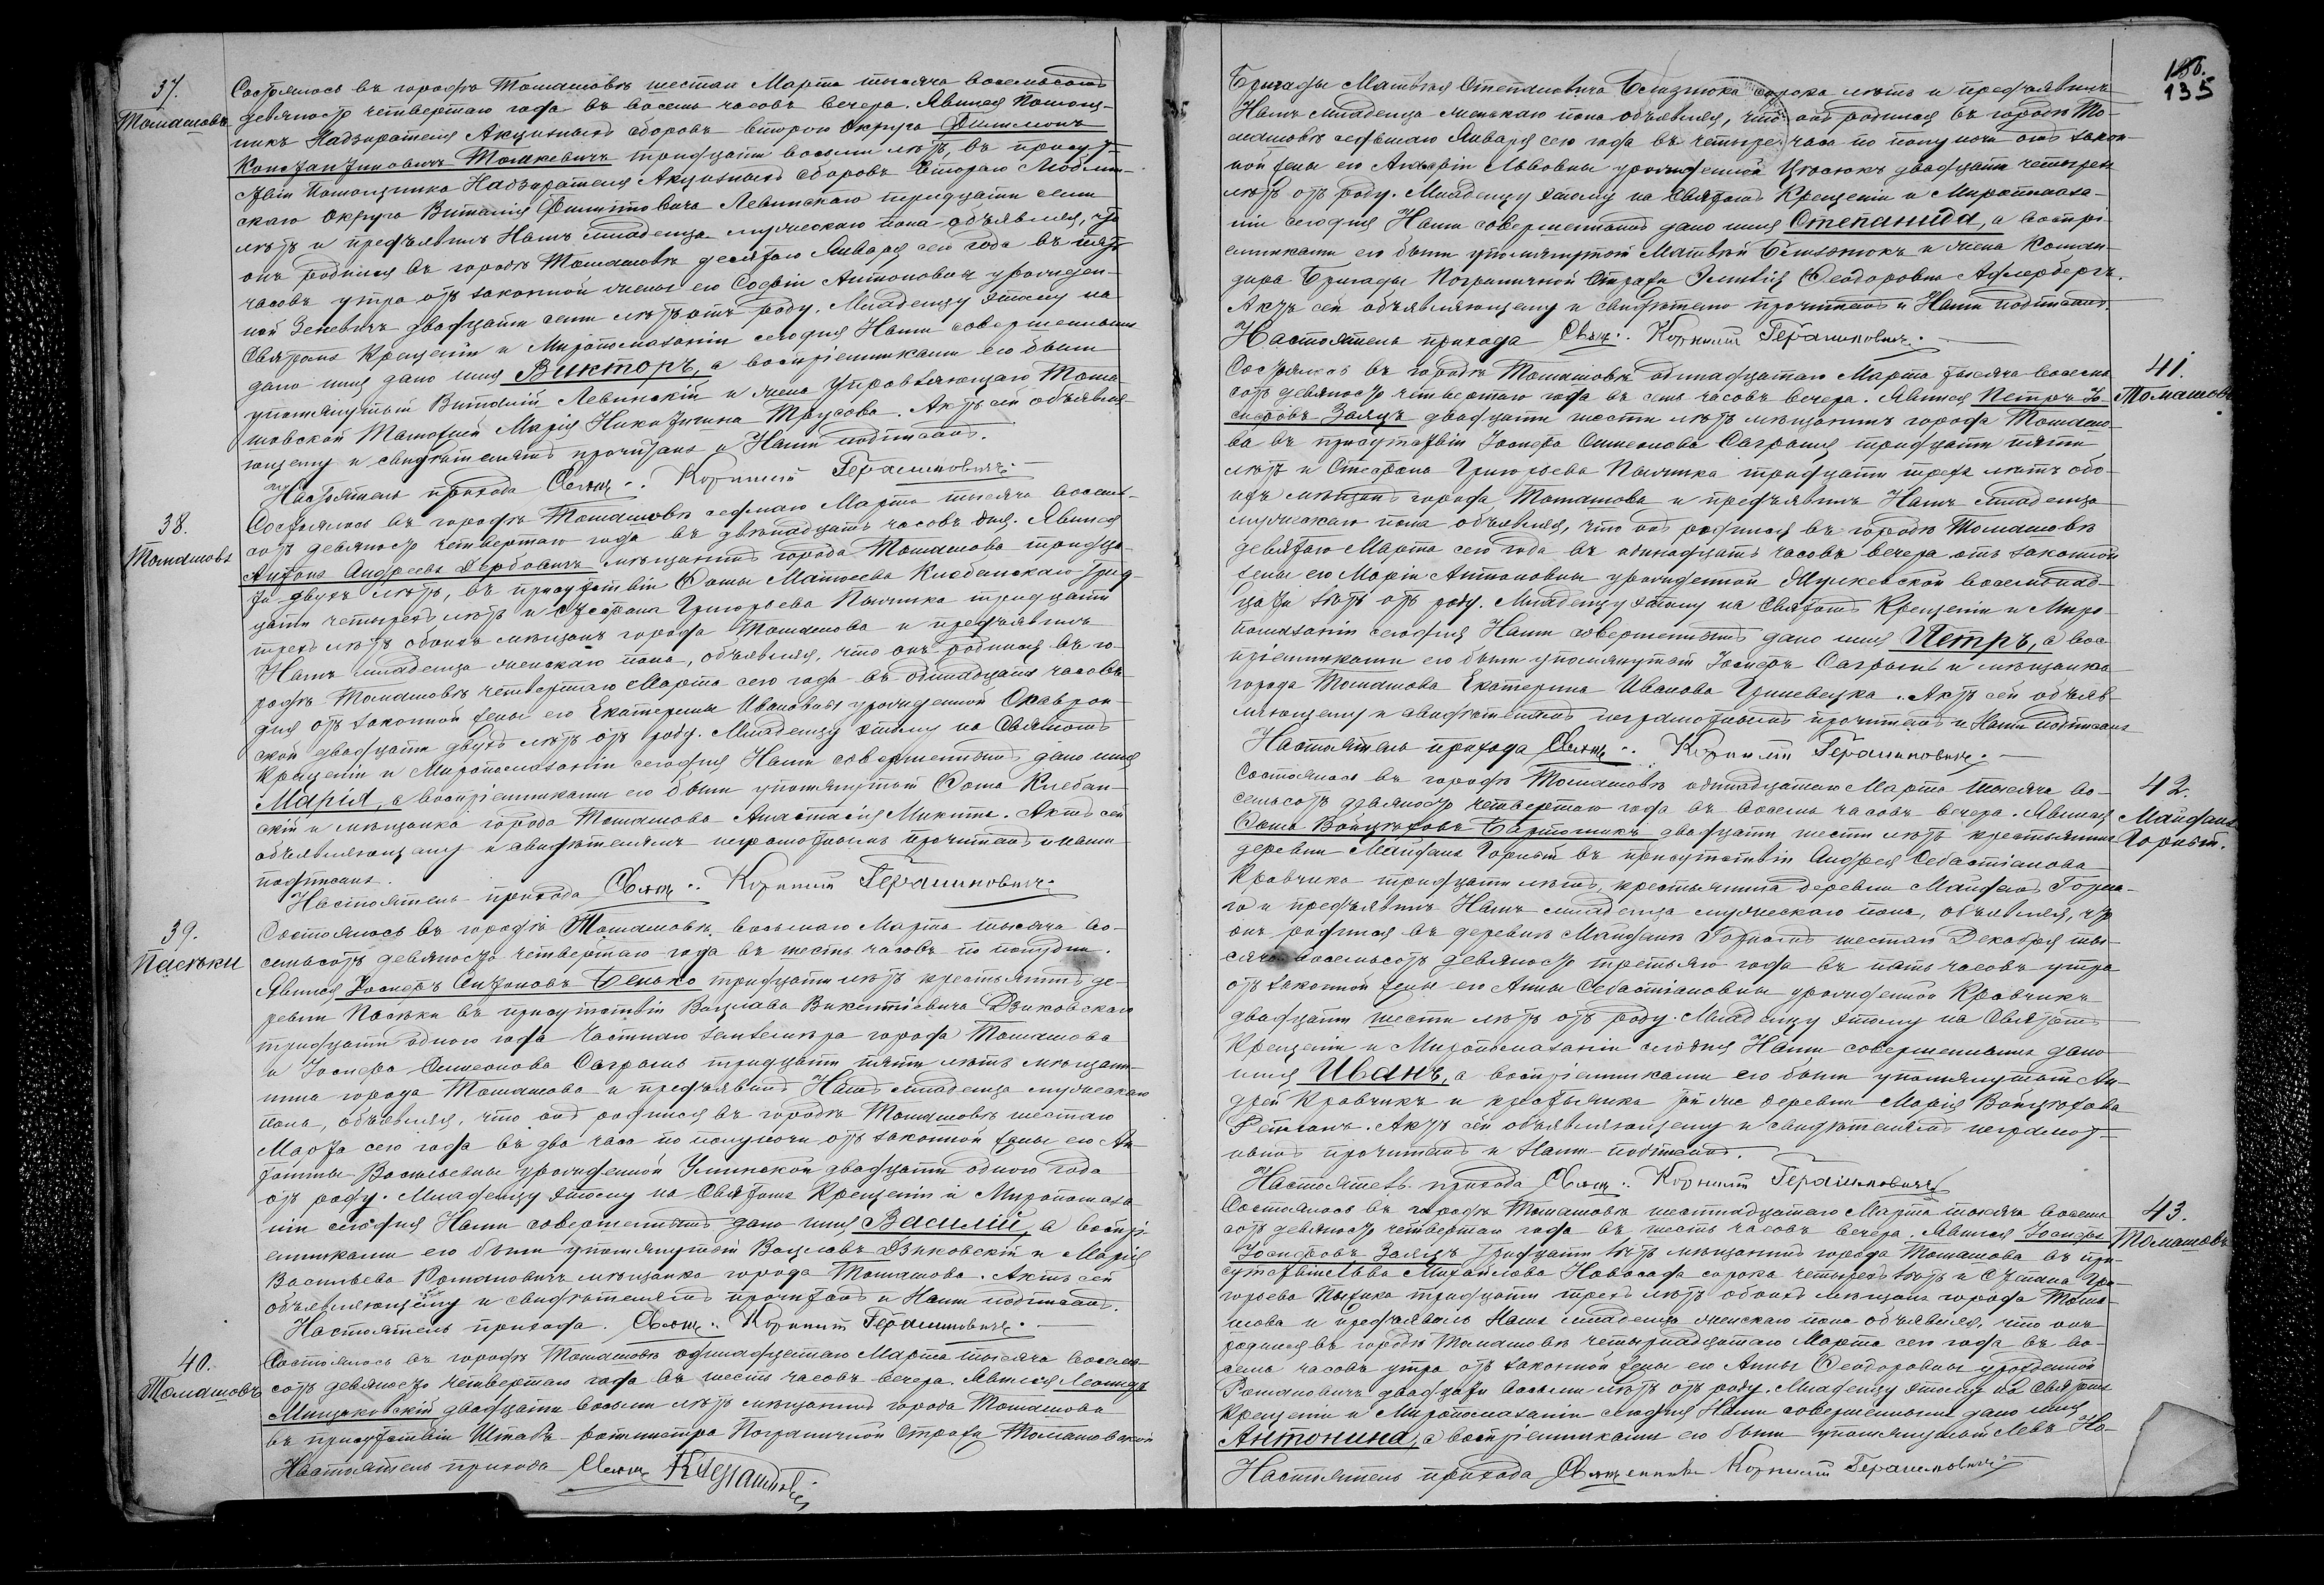 37.
Томашовъ
Состоялось въ городѣ Томашовѣ шестаго Марта тысяча восемьсотъ
девяносто четвертаго года въ восемь часовъ вечера. Явился Помощ-
никъ Надзирателя Акцизныхъ сборовъ второго Округа Филимонъ
Константиновичъ Томкевичъ тридцати восьми лѣтъ, въ присут-
ствіи Помощника Надзирателя Акцизныхъ сборовъ второго Люблин-
скаго Округа Виталія Филиповича Левинскаго тридцати семи
лѣтъ и предъявилъ Намъ младенца мужескаго пола объявляя, что
онъ родился въ городѣ Томашовѣ десятаго Января сего года въ пять
часовъ утра отъ законной жены его Софіи Антоновны урожден-
ной Зеневичъ двадцати семи лѣтъ отъ роду. Младенцу этому на
Святомъ Крещеніи и Миропомазаніи сегодня Нами совершенныхъ
дано имя дано имя Викторъ, а воспріемниками его были
упомянутый Виталій Левинскій и жена Управляющаго Тома-
шовской Таможней Марія Никитична Трусова. Актъ сей объявля-
ющему и свидѣтелямъ прочитанъ и Нами подписанъ.
Настоятель прихода Свящ: Корнилій Герасимовичъ
38.
Томашовъ
Состоялось въ городѣ Томашовѣ седмаго Марта тысяча восемь-
сотъ девяносто четвертаго года въ двѣнадцать часовъ дня. Явился
Антонъ Андреевъ мѣщанинъ города Томашова тридца-
ти двухъ лѣтъ, въ присутствіи Фомы Матѳеева Клебанскаго трид-
цати четырехъ лѣтъ и Стефана Григорьева тридцати
трехъ лѣтъ обоихъ мѣщанъ города Томашова и предъявилъ
Намъ младенца женскаго пола, объявляя, что онъ родился въ го-
родѣ Томашовѣ четвертаго Марта сего года въ одинадцать часовъ
дня отъ законной жены его Екатерины Ивановны урожденной
двадцати двухъ лѣтъ отъ роду. Младенцу этому на Святомъ
Крещеніи и Миропомазаніи сегодня Нами совершенныхъ дано имя
Марія, а воспріемниками его были упомянутый Фома Клебан-
скій и мѣщанка города Томашова Анастасія Микита. Актъ сей
объявляющему и свидѣтелямъ неграмотнымъ прочитанъ и Нами
подписанъ.
Настоятель прихода Свящ: Корнилій Герасимовичъ
39.
Пасѣки
Состоялось въ городѣ Томашовѣ восьмаго Марта тысяча во-
семьсотъ девяносто четвертаго года въ шесть часовъ по полудни.
Явился Іосифъ Антоновъ Бенько тридцати лѣтъ крестьянинъ де-
ревни Пасѣки въ присутствіи Вацлава Викентіевича Дзиковскаго
тридцати одного года частнаго землемѣра города Томашова
и Іосифа Симеонова Саграна тридцати пяти лѣтъ мѣщани-
нна города Томашова и предъявилъ Намъ младенца мужескаго
пола, объявляя, что онъ родился въ городѣ Томашовѣ шестаго
Марта сего года въ два часа по полуночи отъ законной жены его Ан-
тонины Васильевны урожденной двадцати одного года
отъ роду. Младенцу этому на Святомъ Крещеніи и Миропомаза-
ніи сегодня Нами совершенныхъ дано имя Василій, а воспрі-
емниками его были упомянутый Вацлавъ Дзиковскій и Марія
Васильева Романовичъ мѣщанка города Томашова. Актъ сей
объявляющему и свидѣтелямъ прочитанъ и Нами подписанъ.
Настоятель прихода. Свящ: Корнилій Герасимовичъ.
40.
Томашовъ
Состоялось въ городѣ Томашовѣ одинадцатаго Марта тысяча восемь-
сотъ девяносто четвертаго года въ шесть часовъ вечера. Явился Леонидъ
двадцати восьми лѣтъ мѣщанинъ города Томашова
въ присутствіи Штабъ-ротмистра Пограничной Стражи Томашовской
Настоятель прихода Свящ
135
Бригады Матвѣя Степановича сорока лѣтъ и предъявилъ
Намъ младенца женскаго пола объявляя, что онъ родился въ городѣ То-
машовѣ седьмаго Января сего года въ четыре часа по полуночи отъ закон-
ной жены его Львовны урожденной двадцати четырехъ
лѣтъ отъ роду. Младенцу этому на Святомъ Крещеніи и Миропомаза-
ніи сегодня Нами совершенныхъ дано имя Степанида, а воспрі-
емниками его были упомянутый Матвѣй и жена Коман-
дира Бригады Пограничной Стражи Эмилія Ѳеодоровна Адлербергъ.
Актъ сей объявляющему и свидѣтелю прочитанъ и Нами подписанъ.
Настоятель прихода Свящ: Корнилій Герасимовичъ.
41.
Томашовъ
Состоялось въ городѣ Томашовѣ одинадцатаго Марта тысяча восемь-
сотъ девяносто четвертаго года въ семь часовъ вечера. Явился Петръ Іо-
сифовъ Заяцъ двадцати шести лѣтъ мѣщанинъ города Томашо-
ва въ присутствіи Іосифа Симеонова Саграна тридцати пяти
лѣтъ и Стефана Григорьева тридцати трехъ лѣтъ обо-
ихъ мѣщанъ города Томашова и предъявилъ Намъ младенца
мужескаго пола объявляя, что онъ родился въ городѣ Томашовѣ
девятаго Марта сего года въ одинадцать часовъ вечера отъ законной
жены его Маріи Антоновны урожденной восемнад-
цати лѣтъ отъ роду. Младенцу этому на Святомъ Крещеніи и Миро-
помазаніи сегодня Нами совершенныхъ дано имя Петръ, а вос-
пріемниками его были упомянутый Іосифъ Сагранъ и мѣщанка
города Томашова Екатерина Иванова Гриневецка. Актъ сей объяв-
ляющему и свидѣтелямъ неграмотнымъ прочитанъ и Нами подписанъ
Настоятель прихода Свящ: Корнилій Герасимовичъ.
42.
Майданъ
Горный.
Состоялось въ городѣ Томашовѣ одинадцатаго Марта тысяча во-
семьсотъ девяносто четвертаго года въ восемь часовъ вечера. Явился
Фома Войцѣховъ Бартошикъ двадцати шести лѣтъ крестьянинъ
деревни Майданъ Горный въ присутствіи Андрея Себастіанова
Кравчика тридцати лѣтъ, крестьянина деревни Майданъ Горна-
го и предъявилъ Намъ младенца мужескаго пола, объявляя, что
онъ родился въ деревнѣ Майданѣ Горномъ шестаго Декабря ты-
сяча восемьсотъ девяносто третьяго года въ пять часовъ утра
отъ законной жены его Анны Себастіановны урожденной Кравчикъ
двадцати шести лѣтъ отъ роду. Младенцу этому на Святомъ
Крещеніи и Миропомазаніи сегодня Нами совершенныхъ дано
имя Иванъ, а воспріемниками его были упомянутый Ан-
дрей Кравчикъ и крестьянка той же деревни Марія Войцѣхова
Актъ сей объявляющему и свидѣтелямъ неграмот-
нымъ прочитанъ и Нами подписанъ.
Настоятель прихода Свящ: Корнилій Герасимовичъ
43.
Томашовъ
Состоялось въ городѣ Томашовѣ шестнадцатаго Марта тысяча восемь-
сотъ девяносто четвертаго года въ шесть часовъ вечера. Явился Іосифъ
Іосифовъ Заяцъ тридцати лѣтъ мѣщанинъ города Томашова въ при-
сутствіи Льва Михайлова Новосада сорока четырехъ лѣтъ и Стефана Гри-
горьева тридцати трехъ лѣтъ обоихъ мѣщанъ города Тома-
шова и предъявилъ Намъ младенца женскаго пола объявляя, что онъ
родился въ городѣ Томашовѣ четырнадцатаго Марта сего года въ во-
семь часовъ утра отъ законной жены его Анны Ѳеодоровны урожденной
Романовичъ двадцати восьми лѣтъ отъ роду. Младенцу этому на Святомъ
Крещеніи и Миропомазаніи сегодня Нами совершенныхъ дано имя
Антонина, а воспріемниками его были упомянутый Левъ Но-
Настоятель прихода Священникъ Корнилій Герасимовичъ